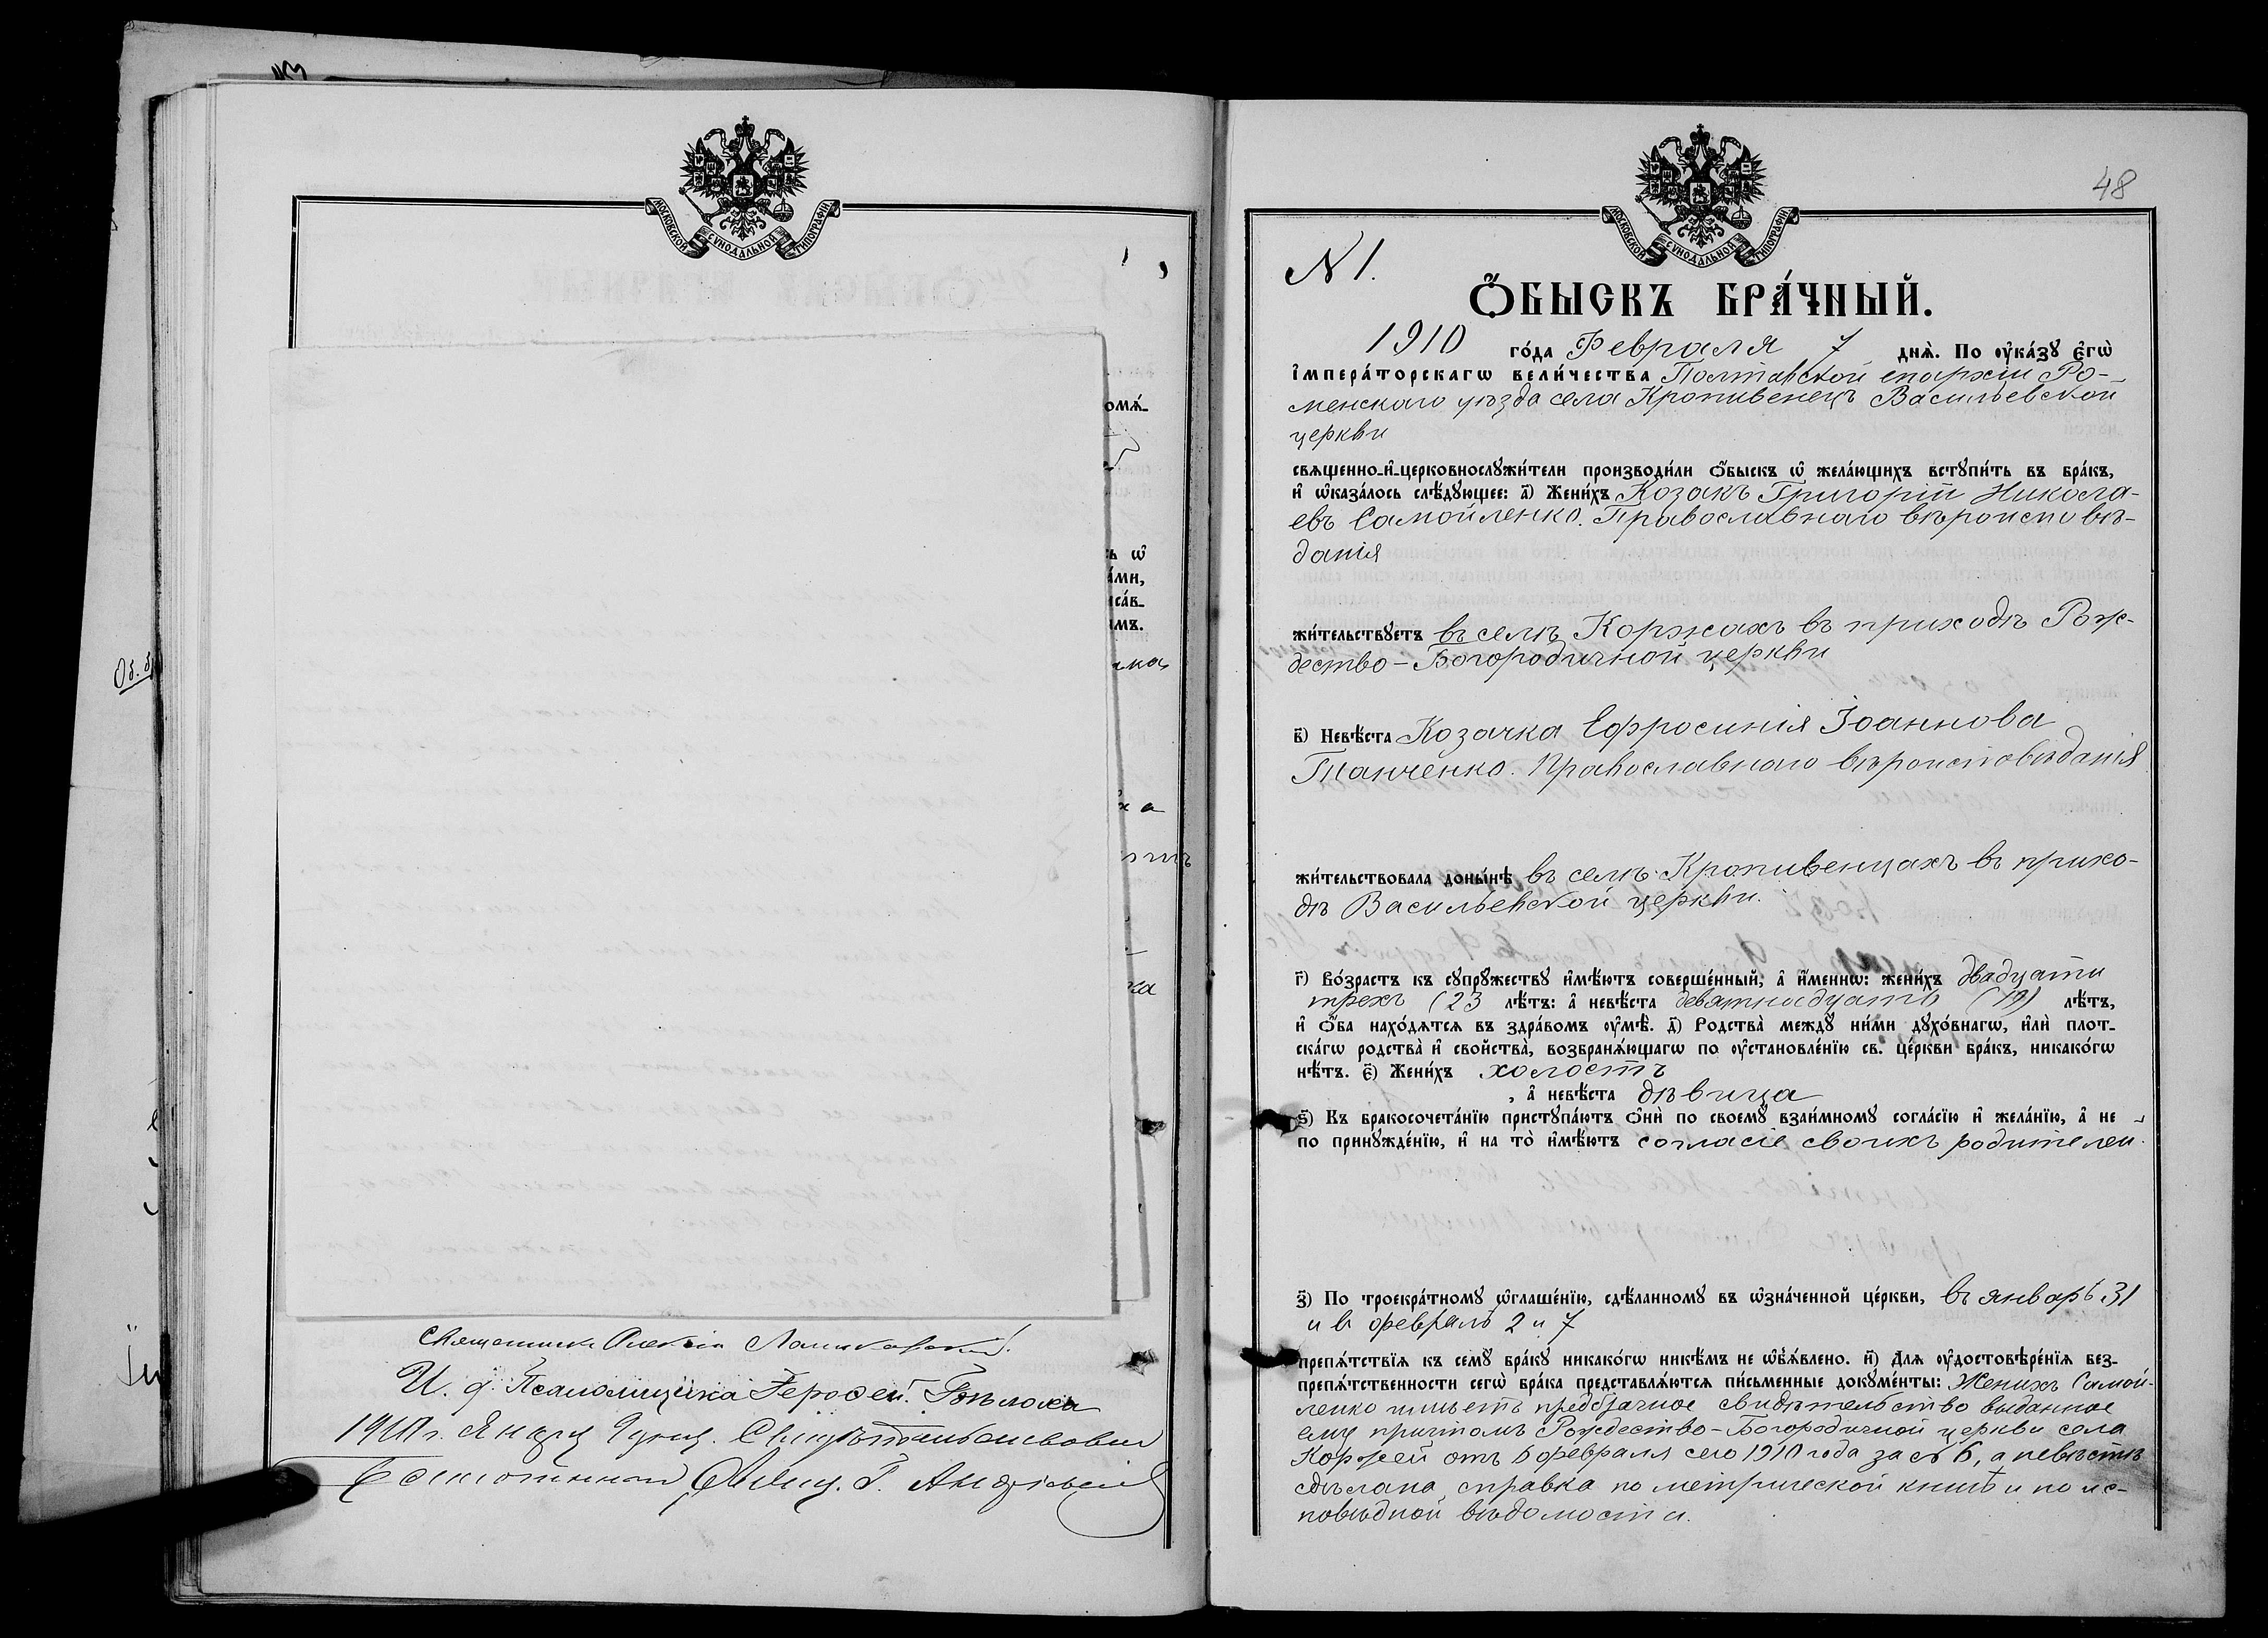 МОСКОВСКОЙ СѴНОДАЛЬНОЙ ТИПОГРАФІИ
омѧ́-
ь ѡ҆
а́ми,
иса́в-
имъ.
ка
Священникъ
И. д. Псаломщика Герасей.
1910 г. Янв
48
МОСКОВСКОЙ СѴНОДАЛЬНОЙ ТИПОГРАФІИ
N 1.
Ѻ҆БЫСКЪ БРА́ЧНЫЙ.
1910 го́да Февраля 7 днѧ̀. По ᲂу҆ка́зꙋ є҆гѡ̀
і҆мпера́торскагѡ вели́чества Полтавской епархіи Ро-
менскаго уѣзда села Кропивенецъ Васильевской
церкви
свѧщенно-и҆-церковнослꙋжи́тели производи́ли ѻ҆́быскъ ѡ҆ жела́ющихъ вступи́ть въ бра́къ,
и҆ ѡ҆каза́лось слѣ́дꙋющее: а҃) Жени́хъ Козакъ Григорій Никола-
евъ Самойленко. Православнаго вѣроисповѣ-
данія
жи́тельствꙋетъ въ селѣ Коржахъ въ приходѣ Рож-
дество-Богородичной церкви
в҃) Невѣ́ста Козачка Ефросинія Іоаннова
Танченко. Православнаго вѣроисповѣданія
жи́тельствовала доны́нѣ въ селѣ Кропивенцахъ въ прихо-
дѣ Васильевской церкви.
г҃) Во́зрастъ къ сꙋпрꙋ́жествꙋ и҆мѣ́ютъ соверше́нный, а҆ и҆́меннѡ: жени́хъ двадцати
трехъ (23 лѣ́тъ: а҆ невѣ́ста девятнадцать (19) лѣ́тъ,
и҆ ѻ҆́ба нахо́дѧтсѧ въ здра́вомъ ᲂу҆мѣ̀. д҃) Родства̀ междꙋ̀ ни́ми дꙋхо́внагѡ, и҆лѝ плот-
ска́гѡ родства̀ и҆ свойства̀, возбранѧ́ющагѡ по ᲂу҆становле́нїю св. це́ркви бра́къ, никако́гѡ
нѣ́тъ. є҃) Жени́хъ холостъ
, а҆ невѣ́ста дѣвица
ѕ҃) Къ бракосочета́нїю приступа́ютъ ѻ҆нѝ по своемꙋ̀ взаи́мномꙋ согла́сїю и҆ жела́нїю, а҆ не
по принꙋжде́нїю, и҆ на то̀ и҆мѣ́ютъ согласіе своихъ родителей.
з҃) По троекра́тномꙋ ѡ҆глаше́нїю, сдѣ́ланномꙋ въ ѡ҆зна́ченной це́ркви, въ январѣ 31
и въ февралѣ 2 и 7
препѧ́тствїѧ къ семꙋ̀ бра́кꙋ никако́гѡ никѣ́мъ не ѡ҆б̾ѧ́влено. и҃) Длѧ ᲂу҆достовѣре́нїѧ без-
препѧ́тственности сегѡ̀ бра́ка представлѧ́ютсѧ пи́сьменные докꙋме́нты: Женихъ Самой-
ленко имѣетъ предбрачное свидѣтельство выданное
ему причтомъ Рождество-Богородичной церкви села
Коржей отъ 6 февраля сего 1910 года за № 6, а невѣстѣ
сдѣлана справка по метрической книгѣ и по ис-
повѣдной вѣдомости.